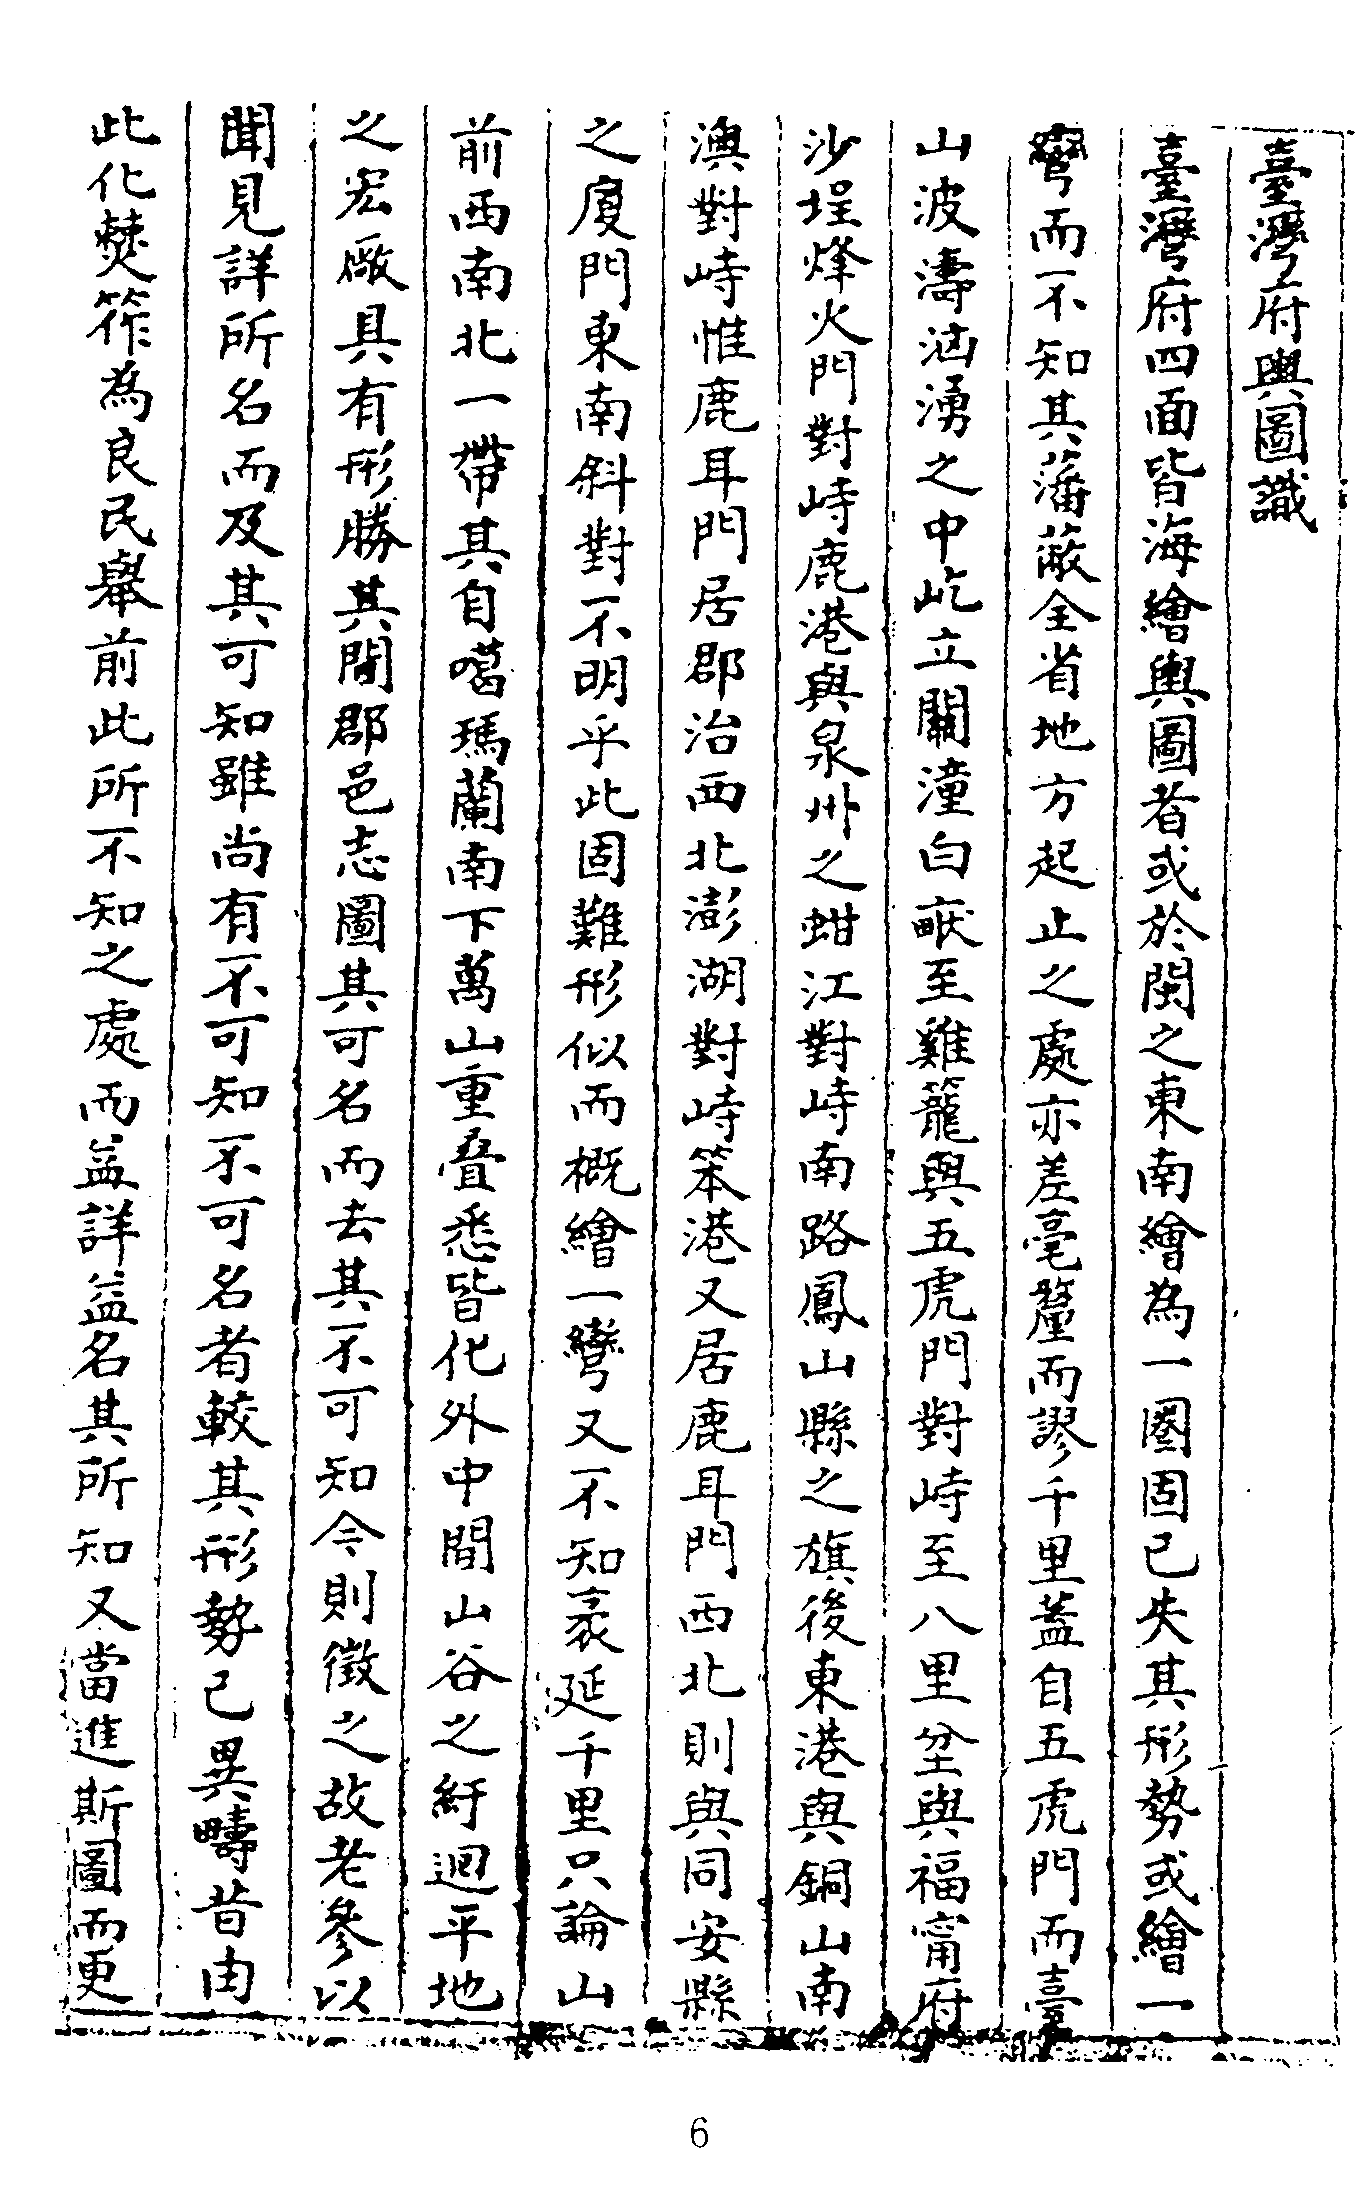 臺灣府輿圖識
臺灣府四面皆海繪輿圖者或於閩之東南繪為一圈固已失其形勢或繪一
彎而不知其藩蔽全省地方起止之處亦差毫釐而謬千里蓋自五虎門而臺
山波濤洶湧之中屹立關潼白畎至雞籠與五虎門對峙至八里坌與福甯府
沙埕烽火門對峙鹿港與泉州之蚶江對峙南路鳳山縣之旗後東港與銅山南
澳對峙惟鹿耳門居郡治西北澎湖對峙笨港又居鹿耳門西北則與同安縣
之廈門東南斜對不明乎此固難形似而概繪一彎又不知袤延千里只論山
前西南北一帶其自噶瑪蘭南下萬山重疊悉皆化外中間山谷之紆迴平地
之宏厰具有形勝其間郡邑志圖其可名而去其不可知今則徵之故老參以
聞見詳所名而及其可知雖尚有不可知不可名者較其形勢已異疇昔由
此化獒筰為良民舉前此所不知之處而益詳益名其所知又當進斯圖而更
6